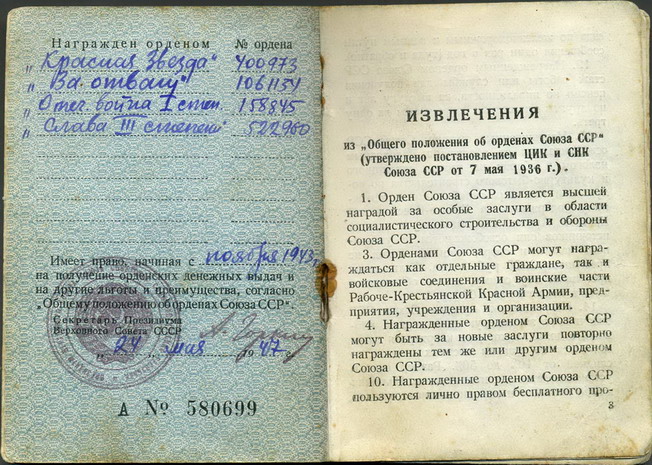 Награжден орденом № ордена
„Красная Звезда" 400973
„За отвагу" 1061151
„Отеч. война I степ. 158845
„Слава III степени" 522960
Имеет право, начиная с ноября 1943 г.
на получение орденских денежных выдач и
на другие льготы и преимущества, согласно
„Общему положению об орденах Союза ССР".
Секретарь Президиума
Верховного Совета СССР
„24" мая 1947 г.
А № 580699
ИЗВЛЕЧЕНИЯ
из „Общего положения об орденах Союза ССР"
(утверждено постановлением ЦИК и СНК
Союза ССР от 7 мая 1936 г.).
1. Орден Союза ССР является высшей
наградой за особые заслуги в области
социалистического строительства и обороны
Союза ССР.
3. Орденами Союза ССР могут награ-
ждаться как отдельные граждане, так и
войсковые соединения и воинские части
Рабоче-Крестьянской Красной Армии, пред-
приятия, учреждения и организации.
4. Награжденные орденом Союза ССР
могут быть за новые заслуги повторно
награждены тем же или другим орденом
Союза ССР.
10. Награжденные орденом Союза ССР
пользуются лично правом бесплатного про-
3